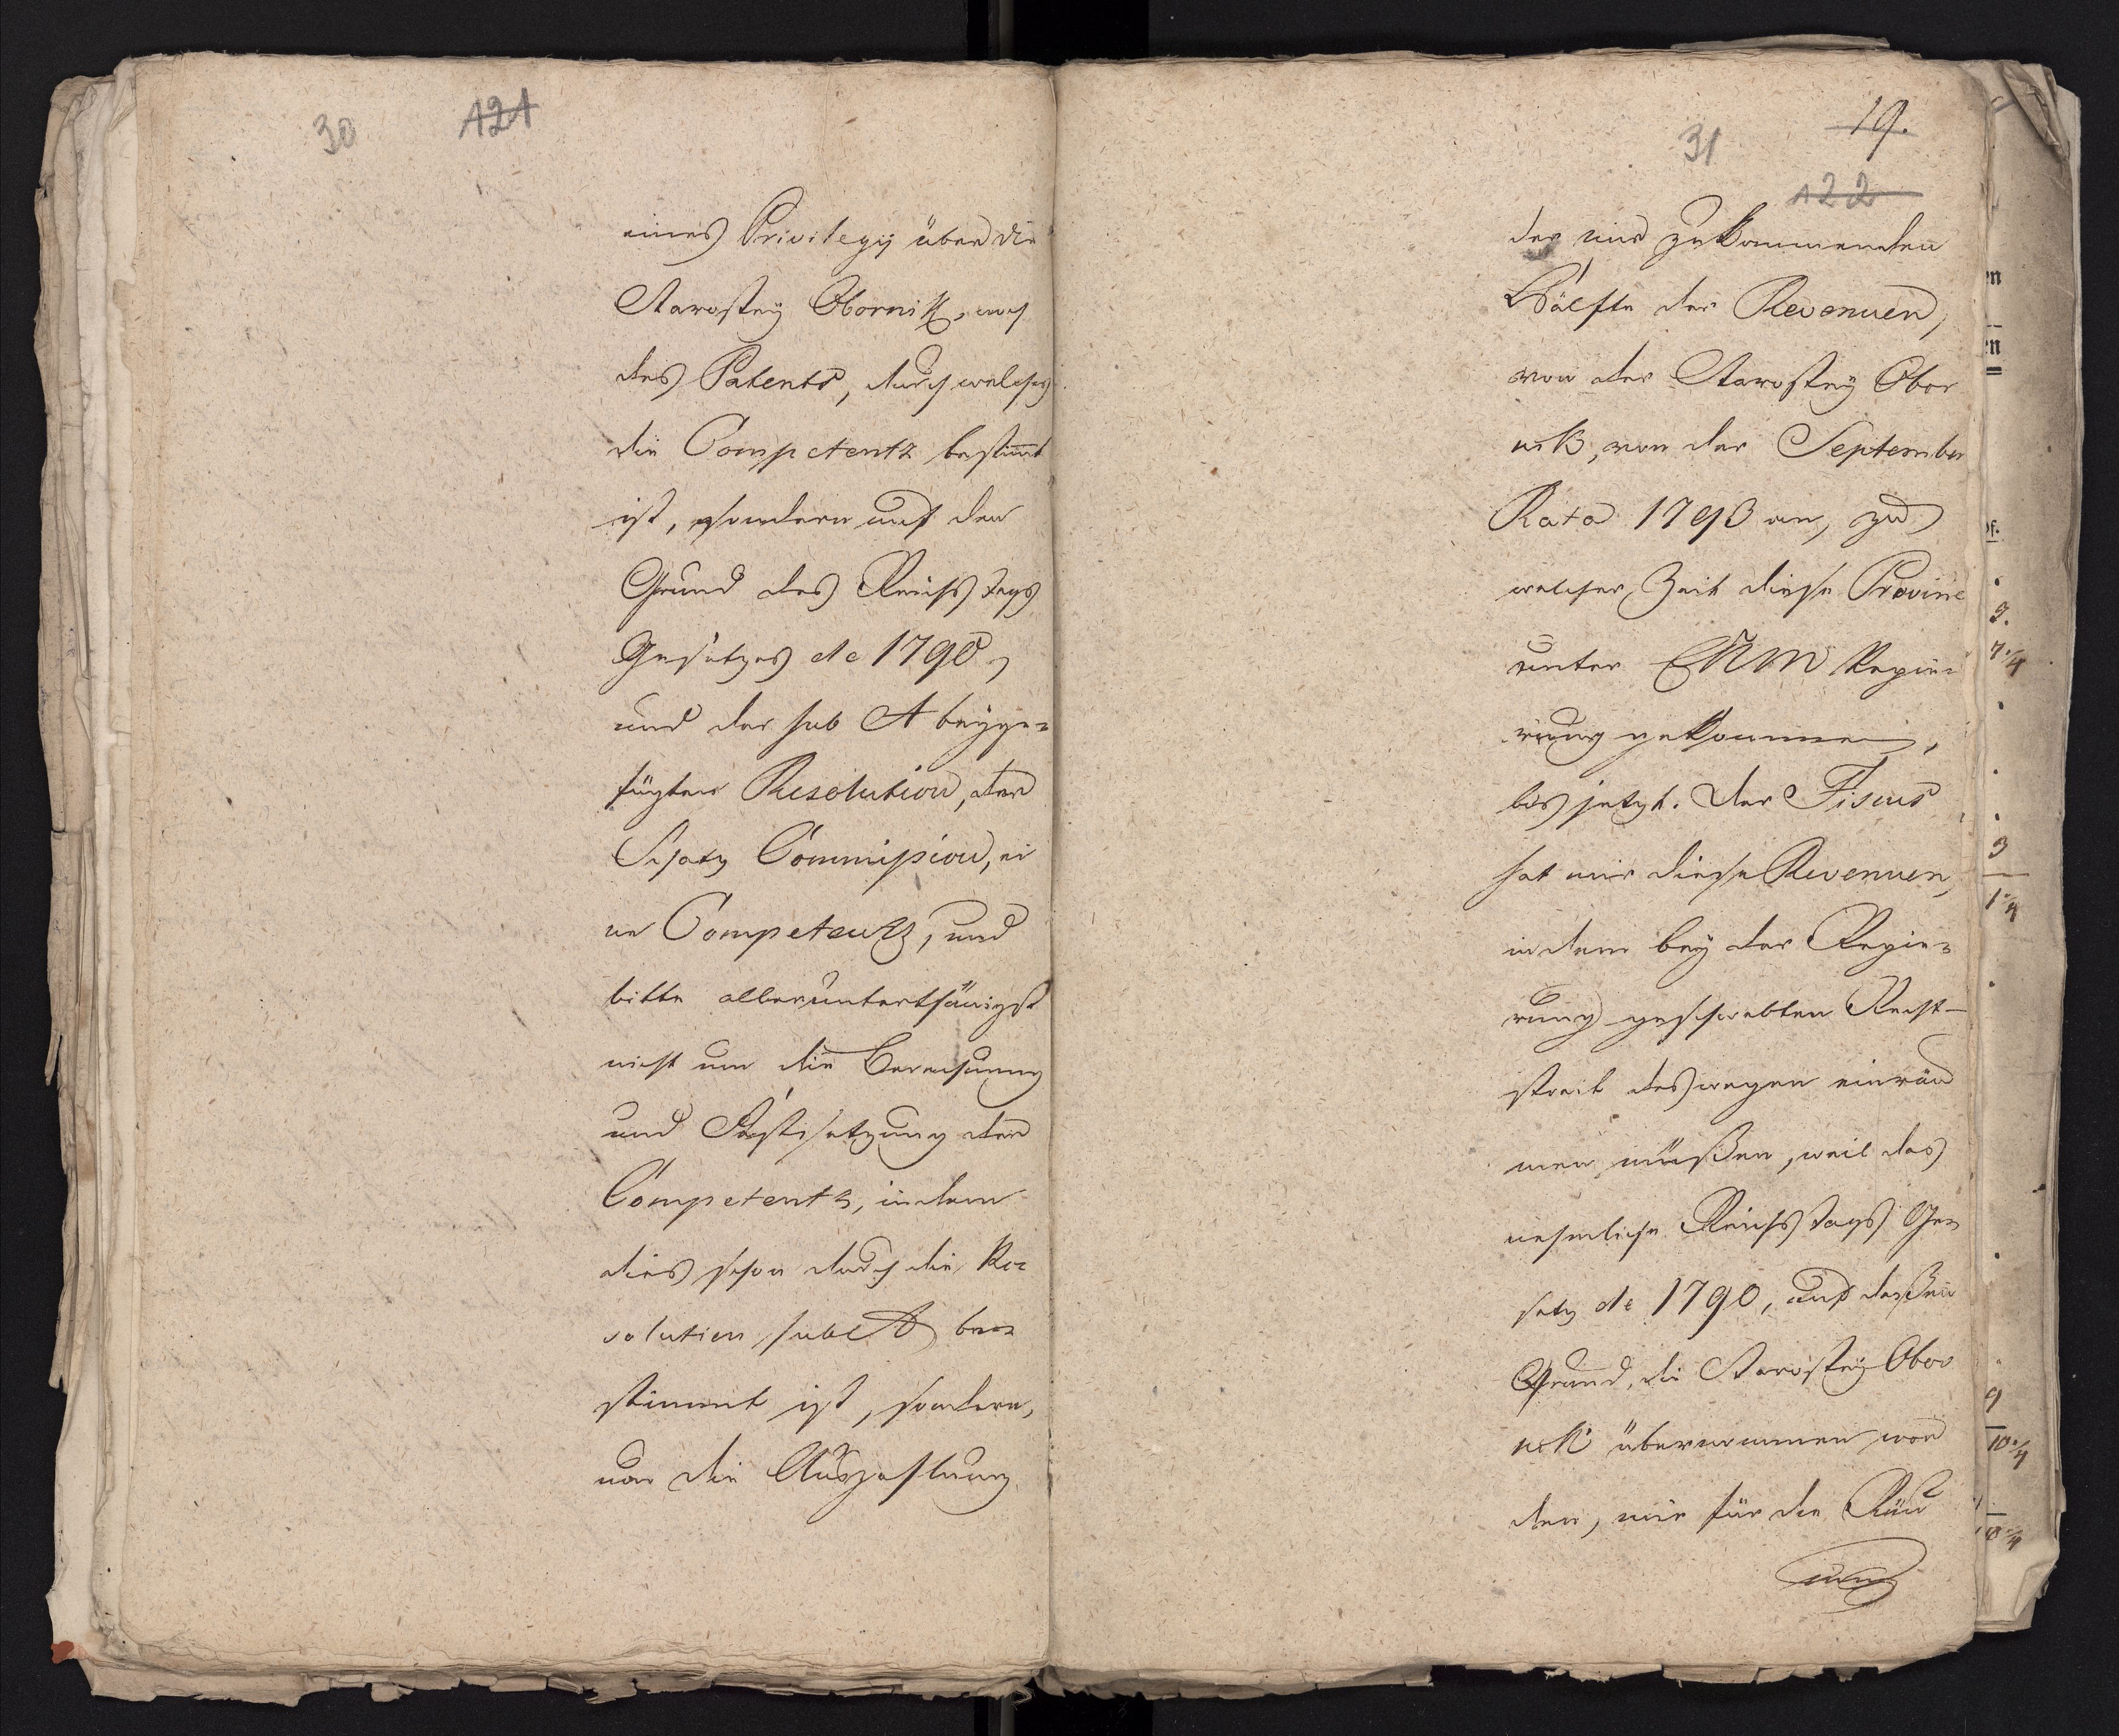 30
121
eines Privilegij über die
Starostey Obornik, noch
des Patents, durch welches
die Competentz bestimt
ist, sondern auf den
Grund des Reichs tags
Gesetzes de 1790,
und der sub A beyge=
fügten Resolution, der
Schatz Commission, ei
ne Competentz, und
bitte allerunterthänigst
nicht um die Berechnung
und Festsetzung der
Competentz, indem
dies schon durch die Re=
solution sub A be=
stimmt ist, sondern,
um die Auszahlung
19.
31
122
der mir zukommenden
Hälfte der Revenuen,
von der Starostey Obor
nik, von der September
Rata 1793 an, zu
welcher Zeit diese Provinc
unter EKM Regie=
rung gekommen,
bis jetzt. Der Fiscus
hat mir diese Revenuen,
in dem bey der Regie=
rung geschwebten Recht-
streit deswegen einräu
men müßen, weil das
nehmliche Reichs tags Ge=
setz de 1790, auf deßen
Grund, die Starostey Obor
nik übernommen wor
den, mir für die Räu
mung